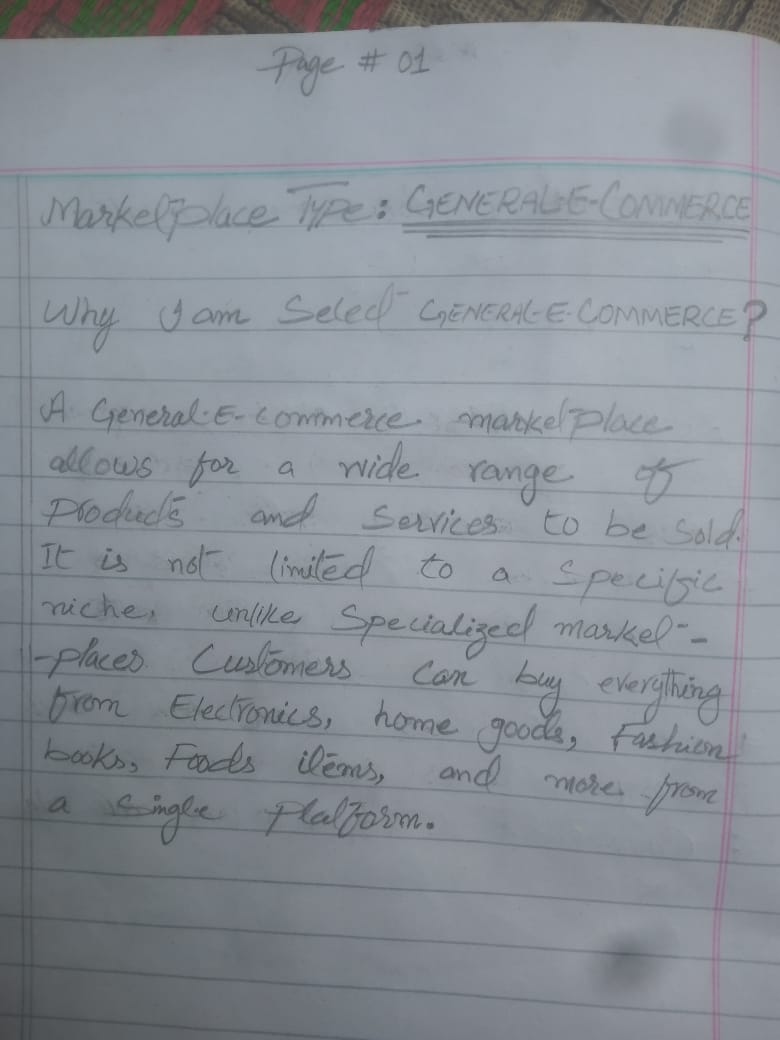 Page # 01
Marketplace Type: GENERAL-E-COMMERCE
Why I am Select GENERAL-E-COMMERCE?
A General-E-commerce marketplace
allows for a wide range of
Products and Services to be Sold.
It is not limited to a Specific
niche, unlike Specialized market-
-places. Customers can buy everything
from Electronics, home goods, Fashion
books, Foods items, and more from
a Single Platform.